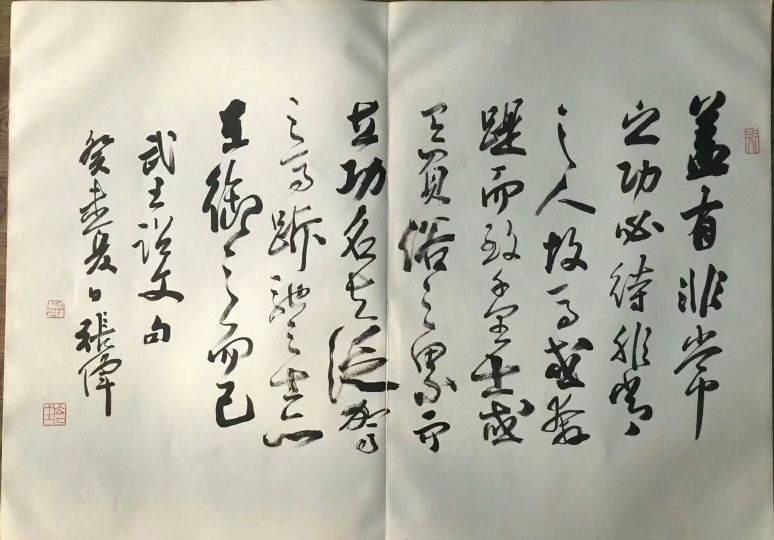 蓋有非常
之功必待非常
之人故馬或奔
踶而致千里士或
有負俗之累而
立功名夫泛駕
之馬跅弛之士亦
在御之而已
武 文句
癸未夏日張偉